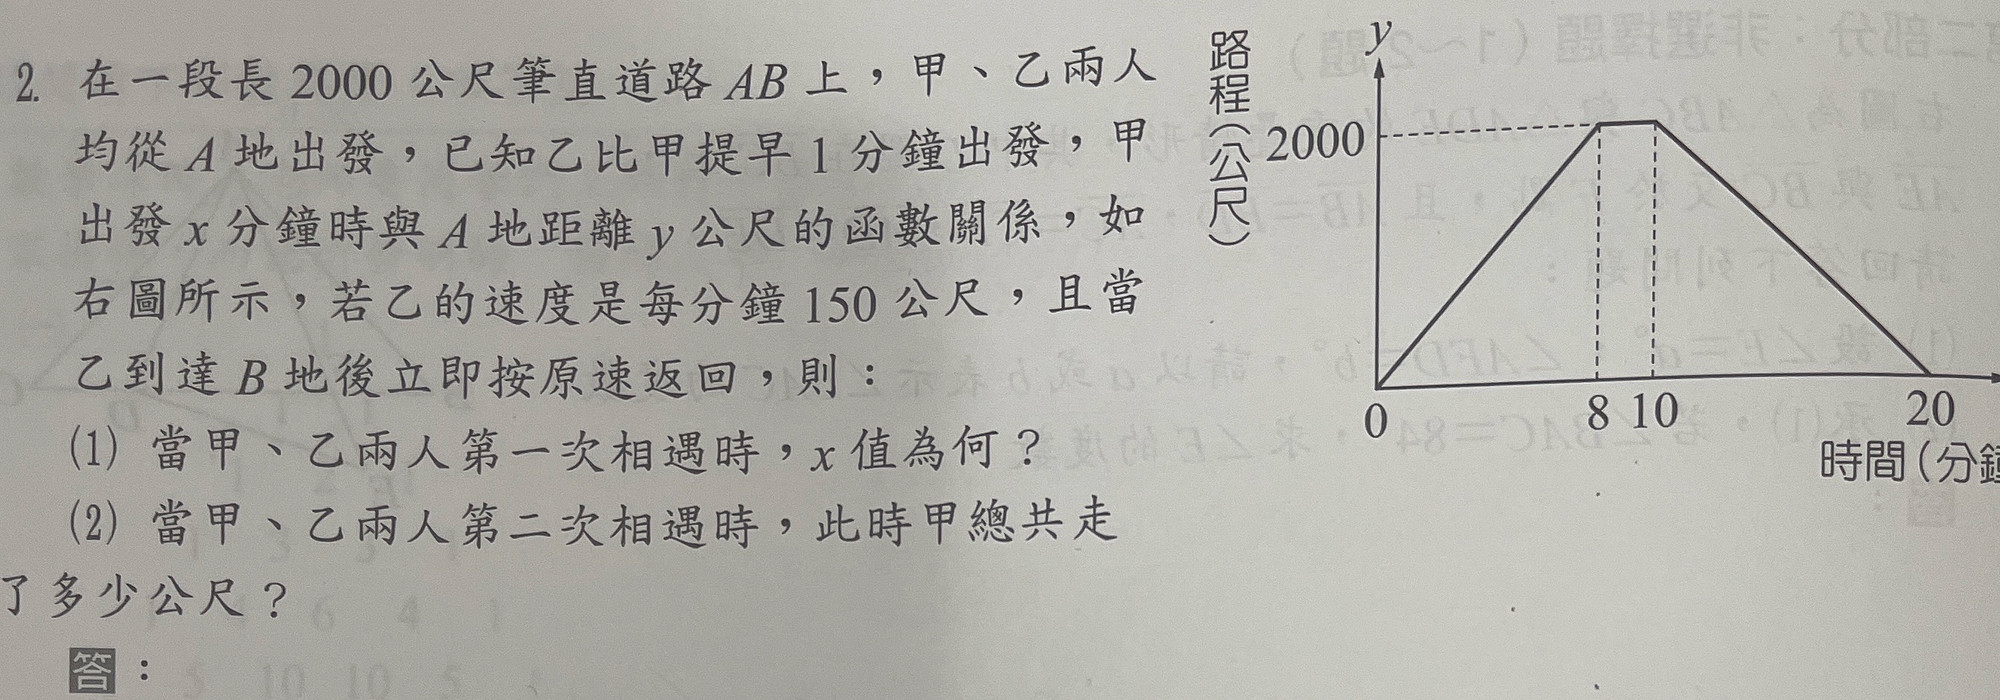 2. 在一段長 2000 公尺筆直道路 AB 上，甲、乙兩人
均從 A 地出發，已知乙比甲提早 1 分鐘出發，甲
出發 x 分鐘時與 A 地距離 y 公尺的函數關係，如
右圖所示，若乙的速度是每分鐘 150 公尺，且當
乙到達 B 地後立即按原速返回，則：
(1) 當甲、乙兩人第一次相遇時，x 值為何？
(2) 當甲、乙兩人第二次相遇時，此時甲總共走
了多少公尺？
答：
路程（公尺）
y
2000
0
8 10
20
時間（分鐘